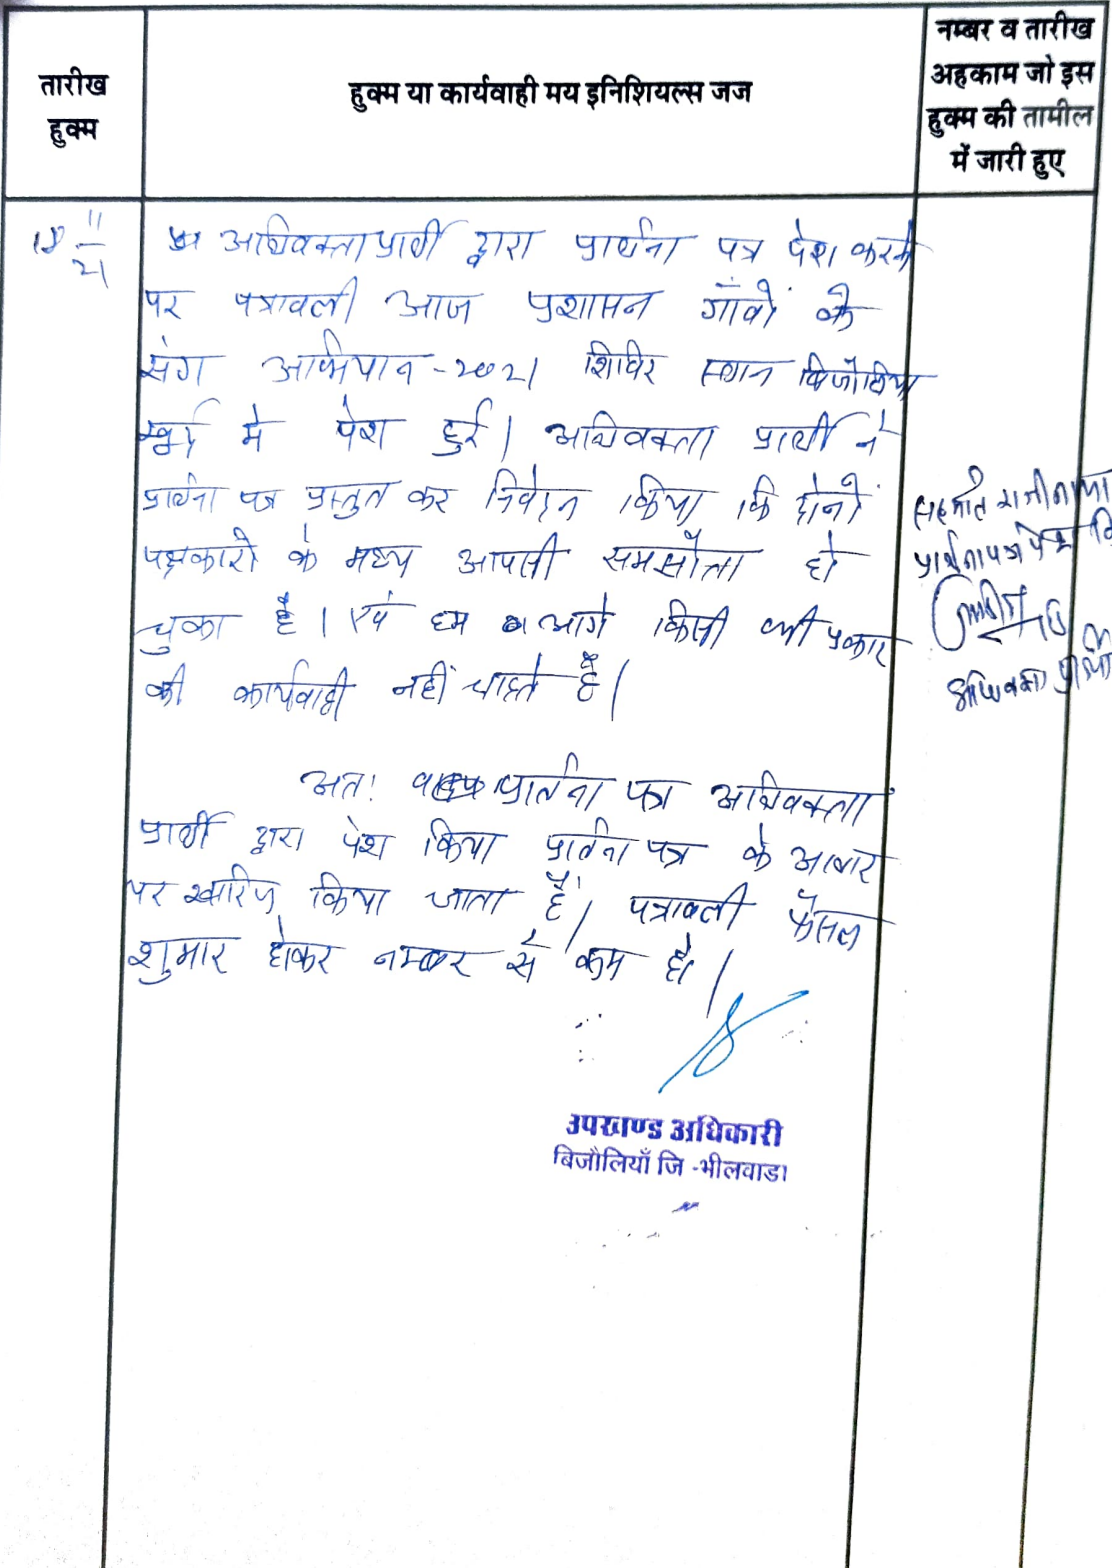 तारीख
हुक्म
हुक्म या कार्यवाही मय इनिशियल्स जज
नम्बर व तारीख
अहकाम जो इस
हुक्म की तामील
में जारी हुए
18/11/21
अधिवक्ता प्रार्थी द्वारा प्रार्थना पत्र पेश करने
पर पत्रावली आज प्रशासन गाँवों के
संग अभियान-2021 शिविर स्थान बिजौलिया
में पेश हुई। अधिवक्ता प्रार्थी ने
प्रार्थना पत्र प्रस्तुत कर निवेदन किया कि दोनों
पक्षकारो के मध्य आपसी समझौता हो
चुका है। एवं हम आगे किसी भी प्रकार
की कार्यवाही नहीं चाहते है।
अतः प्रार्तना पत्र अधिवक्ता
प्रार्थी द्वारा पेश किया प्रार्तना पत्र के आधार
पर खारिज किया जाता है। पत्रावली फैसल
शुमार होकर नम्बर से कम हो।
सहमति राजीनामा
प्रार्थना पत्र पेश
अधिवक्ता प्रार्थी
उपखण्ड अधिकारी
बिजौलियाँ जि -भीलवाडा